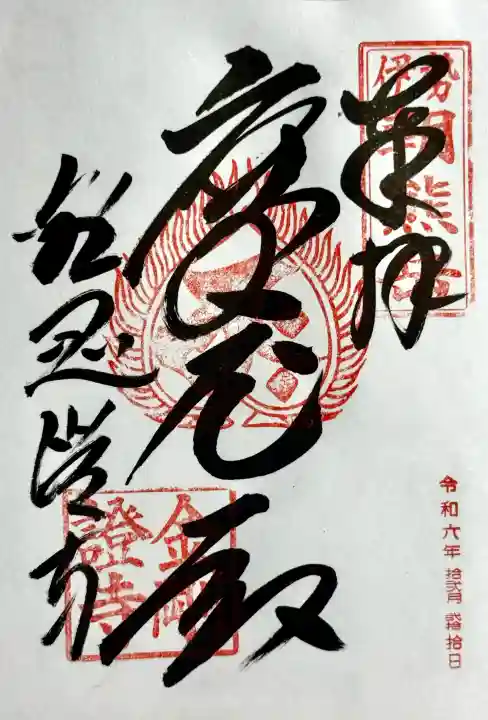 奉拝
伊勢
朝熊岳
摩尼殿
金剛證寺
金剛
證寺
令和六年 拾弐月